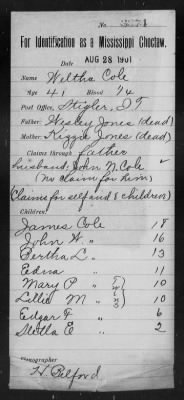 No.
For Identification as a Mississippi Choctaw.
Date AUG 28 1901
Name Weltha Cole
Age 41 Blood 1/4
Post Office, Stigler, I.T.
Father: Wesley Jones (dead)
Mother: Kizzie Jones (dead)
Claims through father
husband, John N. Cole
(no claim for him)
Claims for self and 8 children)
Children:
James Cole 18
John W. " 16
Bertha L. " 13
Edna " 11
Mary P " 10
Lillie M " 10
Edgar F " 6
Stella E " 2
Stenographer
H. Pilford